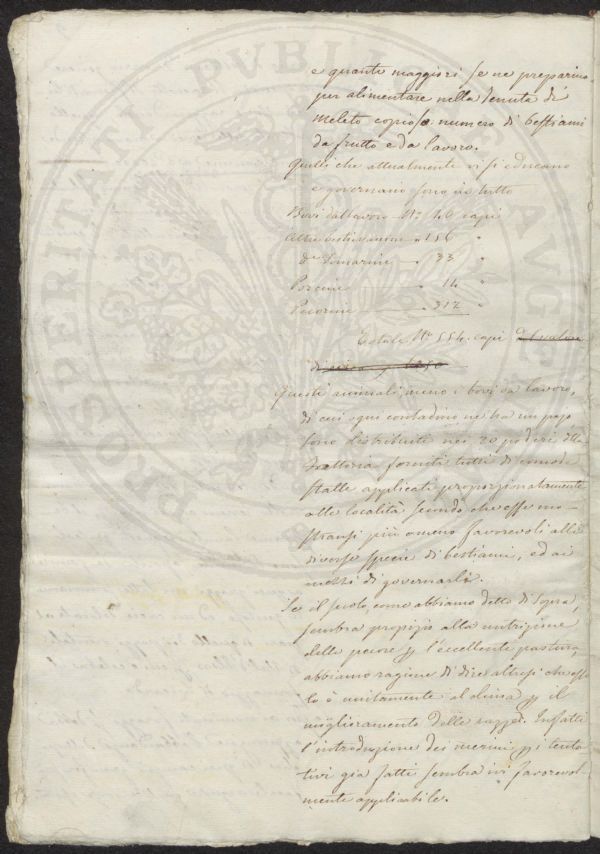 PROSPERITATI PVBLICAE AVGENDAE
e quante maggiori se ne preparino
per alimentare nella tenuta di
Meleto copioso numero di bestiami
da frutto e da lavoro.
Quelli che attualmente vi si educano
e governano sono in tutto
Bovi da lavoro N° 40 capi
Altre bestie vaccine " 156 "
d° Somarine " 33 "
Porcine " 14 "
Pecorine " 312 "
Totale N° 554. capi del valore
di circa
Questi animali, meno i bovi da lavoro,
di cui ogni contadino ne ha un pajo
sono distribuiti nei 20 poderi della
Fattoria forniti tutti di comode
stalle applicati proporzionatamente
alle località secondo che esse mo-
stransi più o meno favorevoli alle
diverse specie di bestiami, ed ai
mezzi di governarli.
Se il suolo, come abbiamo detto di sopra,
sembra propizio alla nutrizione
delle pecore p l'eccellente pastura
abbiamo ragione di dire altresì che es
lo è unitamente al clima p il
miglioramento delle razze. Infatti
l'introduzione dei merini p i tenta
tivi già fatti sembra ivi favorevol-
mente applicabile.